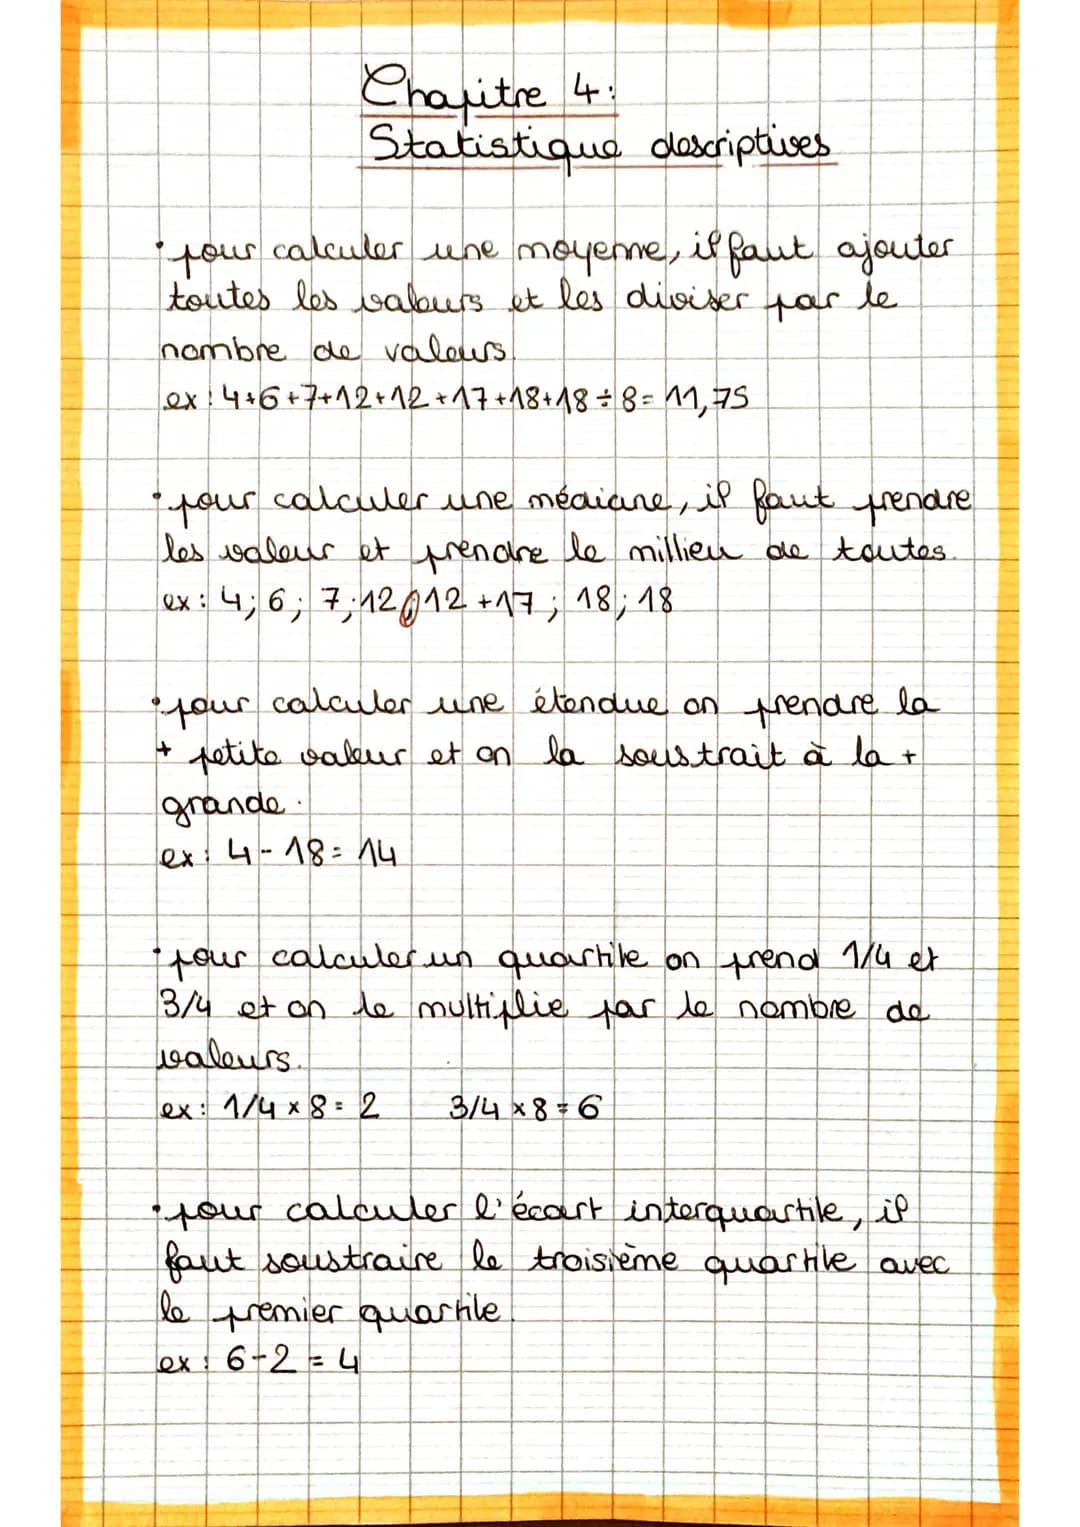 Chapitre 4:
Statistique descriptives
• pour calculer une moyenne, il faut ajouter
toutes les valeurs et les diviser par le
nombre de valeurs.
ex : 4+6+7+12+12+17+18+18÷8= 11,75
• pour calculer une médiane, il faut prendre
les valeur et prendre le millieu de toutes.
ex : 4; 6; 7; 12;12 +17; 18; 18
• pour calculer une étendue on prendre la
+ petite valeur et on la soustrait à la +
grande.
ex : 4 - 18 = 14
• pour calculer un quartile on prend 1/4 et
3/4 et on le multiplie par le nombre de
valeurs.
ex : 1/4 × 8 = 2 3/4 × 8 = 6
• pour calculer l'écart interquartile, il
faut soustraire le troisième quartile avec
le premier quartile.
ex : 6-2 = 4